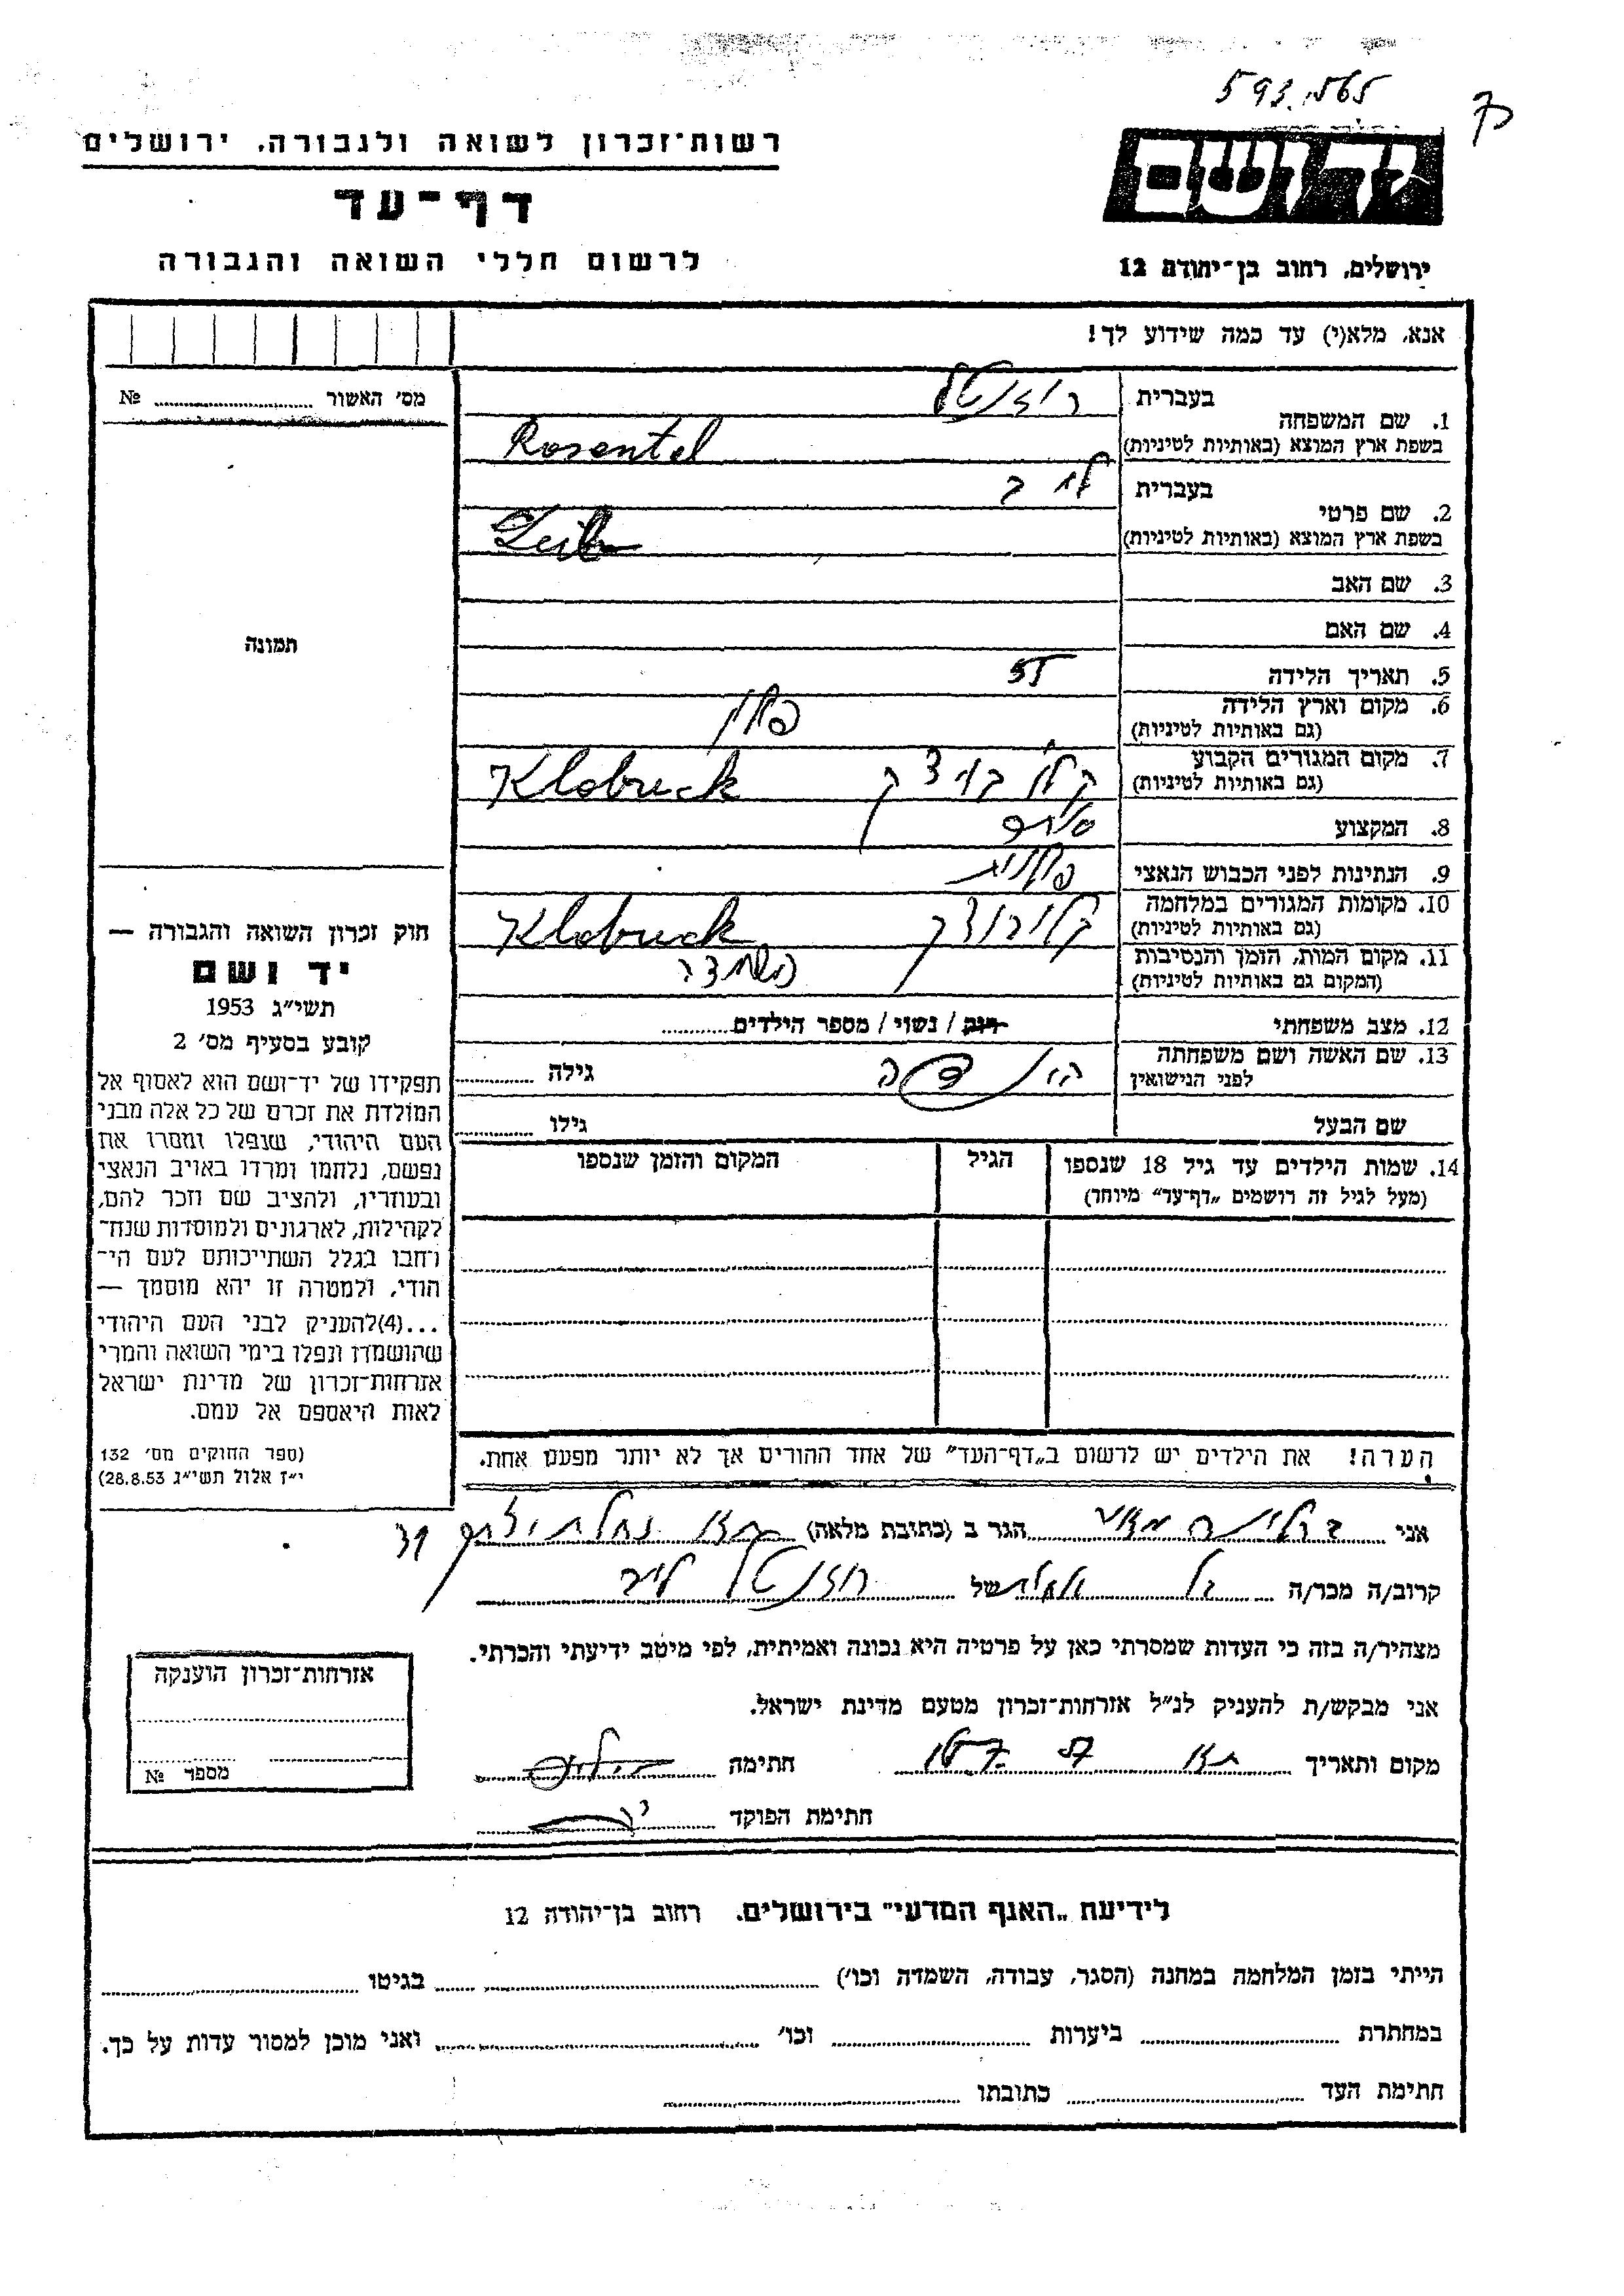 593.565
רשות־זכרון לשואה ולגבורה. ירושלים
דף־עד
לרשום חללי השואה והגבורה
יד ושם
ירושלים, רחוב בן־יהודה 12
אנא, מלא(י) עד כמה שידוע לך!
מס׳ האשור № ........
תמונה
1. שם המשפחה בעברית רוזנטל
בשפת ארץ המוצא (באותיות לטיניות) Rosentel
2. שם פרטי בעברית לייב
בשפת ארץ המוצא (באותיות לטיניות) Leib
3. שם האב
4. שם האם
5. תאריך הלידה 55
6. מקום וארץ הלידה פולין
(גם באותיות לטיניות)
7. מקום המגורים הקבוע קלובוצק Klobuck
(גם באותיות לטיניות)
8. המקצוע סוחר
9. הנתינות לפני הכבוש הנאצי פולנית
10. מקומות המגורים במלחמה קלובוצק Klobuck
(גם באותיות לטיניות)
11. מקום המות, הזמן והנסיבות השמדה
(המקום גם באותיות לטיניות)
12. מצב משפחתי רווק / נשוי / מספר הילדים........
13. שם האשה ושם משפחתה הינדה גילה ........
לפני הנישואין
שם הבעל גילו ........
14. שמות הילדים עד גיל 18 שנספו הגיל המקום והזמן שנספו
(מעל לגיל זה רושמים „דף־עד” מיוחד)
הערה! את הילדים יש לרשום ב„דף־העד” של אחד ההורים אך לא יותר מפעם אחת.
חוק זכרון השואה והגבורה —
יד ושם
תשי״ג 1953
קובע בסעיף מס׳ 2
תפקידו של יד־ושם הוא לאסוף אל
המולדת את זכרם של כל אלה מבני
העם היהודי, שנפלו ומסרו את
נפשם, נלחמו ומרדו באויב הנאצי
ובעוזריו, ולהציב שם וזכר להם,
לקהילות, לארגונים ולמוסדות שנח־
רחבו בגלל השתייכותם לעם הי־
הודי, ולמטרה זו יהא מוסמך —
...(4)להעניק לבני העם היהודי
שהושמדו ונפלו בימי השואה והמרי
אזרחות־זכרון של מדינת ישראל
לאות היאספם אל עמם.
(ספר החוקים מס׳ 132
י״ז אלול תשי״ג 28.8.53)
אני ........ הגר ב (כתובת מלאה) ........
קרוב/ה מכר/ה ........ של רוזנטל לייב
מצהיר/ה בזה כי העדות שמסרתי כאן על פרטיה היא נכונה ואמיתית, לפי מיטב ידיעתי והכרתי.
אני מבקש/ת להעניק לנ״ל אזרחות־זכרון מטעם מדינת ישראל.
מקום ותאריך ........ חתימה ........
חתימת הפוקד ........
אזרחות־זכרון הוענקה
מספר №
לידיעת „האגף המדעי” בירושלים. רחוב בן־יהודה 12
הייתי בזמן המלחמה במחנה (הסגר, עבודה, השמדה וכו׳) ........ בגיטו ........
במחתרת ........ ביערות ........ וכו׳ ........ ואני מוכן למסור עדות על כך.
חתימת העד ........ כתובתו ........